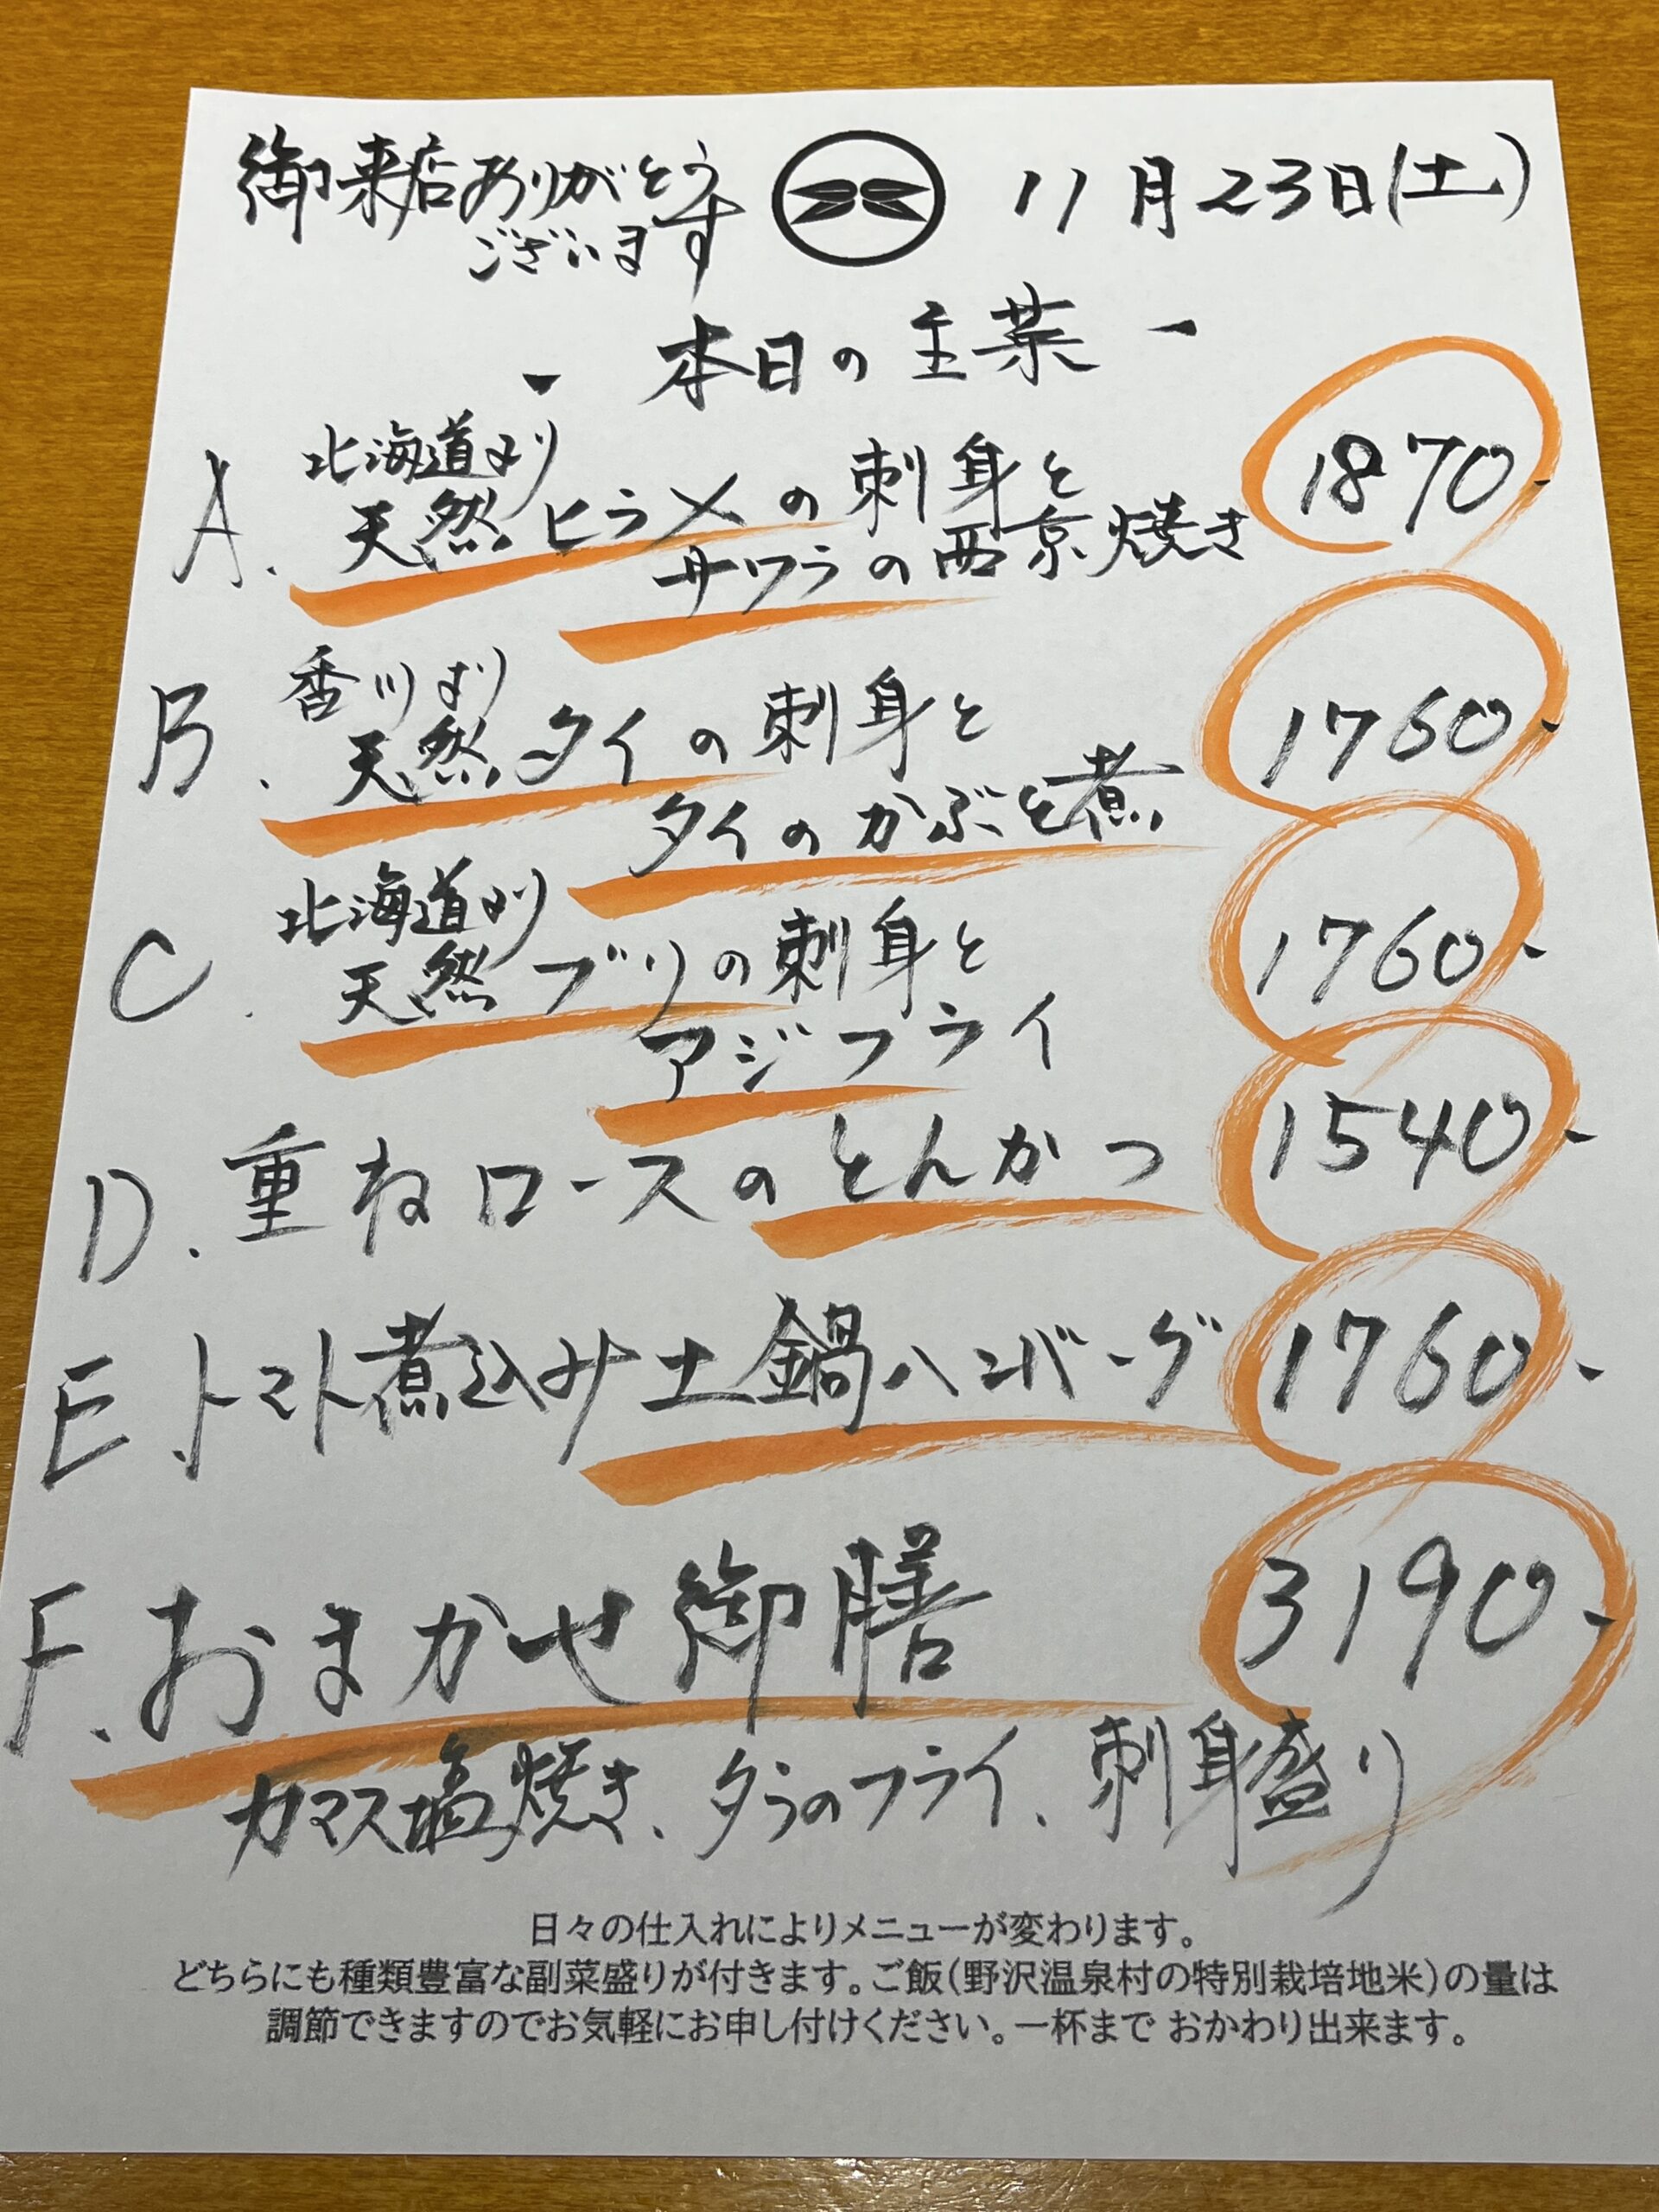 御来店ありがとう
ございます
11月23日(土)
- 本日の主菜 -
A. 北海道より
天然ヒラメの刺身と
サワラの西京焼き
1870-
B. 香川より
天然タイの刺身と
タイのかぶと煮
1760-
C. 北海道より
天然ブリの刺身と
アジフライ
1760-
D. 重ねロースのとんかつ 1540-
E. トマト煮込み土鍋ハンバーグ 1760-
F. おまかせ御膳 3190-
カマス塩焼き、タラのフライ、刺身盛り
日々の仕入れによりメニューが変わります。
どちらにも種類豊富な副菜盛りが付きます。ご飯(野沢温泉村の特別栽培地米)の量は
調節できますのでお気軽にお申し付けください。一杯まで おかわり出来ます。